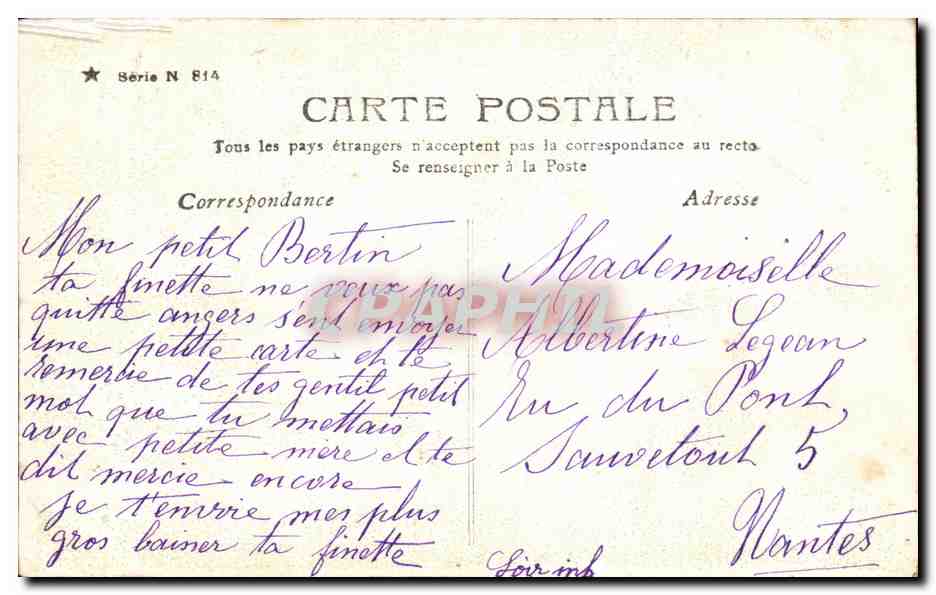 ★ Série N 814
CARTE POSTALE
Tous les pays étrangers n'acceptent pas la correspondance au recto
Se renseigner à la Poste
Correspondance
Adresse
Mon petit Bertin
ta finette ne veux pas
quitte angers sent envoyer
une petite carte et te
remercie de tes gentil petit
mot que tu mettais
avec petite mère et te
dit mercie encore
je t'envoie mes plus
gros baiser ta finette
Mademoiselle
Albertine Legean
Ru du Pont
Sauvetout 5
Nantes
Loir inf
CPAPHIL